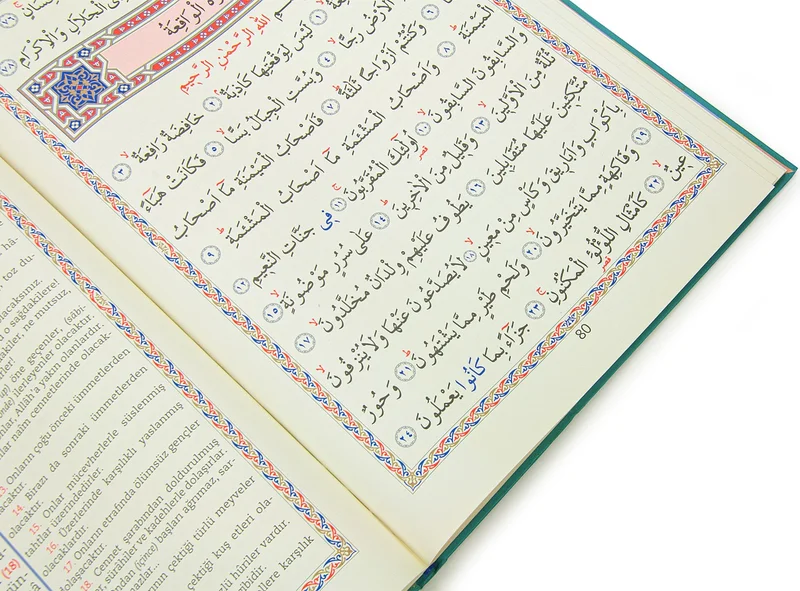 الْجَلَالِ وَالْاِكْرَامِ ٧٨
الْوَاقِعَةُ
اللّٰهِ الرَّحْمٰنِ الرَّحِيمِ
١ لَيْسَ لِوَقْعَتِهَا كَاذِبَةٌ ٢ خَافِضَةٌ رَافِعَةٌ ٣
الْاَرْضُ رَجًّا ٤ وَبُسَّتِ الْجِبَالُ بَسًّا ٥ فَكَانَتْ هَبَٓاءً
٦ وَكُنْتُمْ اَزْوَاجًا ثَلٰثَةً ٧ فَاَصْحَابُ الْمَيْمَنَةِ مَٓا اَصْحَابُ
الْمَيْمَنَةِ ٨ وَاَصْحَابُ الْمَشْـَٔمَةِ مَٓا اَصْحَابُ الْمَشْـَٔمَةِ ٩
وَالسَّابِقُونَ السَّابِقُونَ ١٠ اُولٰٓئِكَ الْمُقَرَّبُونَ ١١ فِي جَنَّاتِ النَّعِيمِ ١٢
ثُلَّةٌ مِنَ الْاَوَّلِينَ ١٣ وَقَلِيلٌ مِنَ الْاٰخِرِينَ ١٤ عَلٰى سُرُرٍ مَوْضُونَةٍ ١٥
مُتَّكِـِٔينَ عَلَيْهَا مُتَقَابِلِينَ ١٦ يَطُوفُ عَلَيْهِمْ وِلْدَانٌ مُخَلَّدُونَ ١٧
بِاَكْوَابٍ وَاَبَارِيقَ وَكَأْسٍ مِنْ مَعِينٍ ١٨ لَا يُصَدَّعُونَ عَنْهَا وَلَا يُنْزِفُونَ
١٩ وَفَاكِهَةٍ مِمَّا يَتَخَيَّرُونَ ٢٠ وَلَحْمِ طَيْرٍ مِمَّا يَشْتَهُونَ ٢١ وَحُورٌ
عِينٌ ٢٢ كَاَمْثَالِ اللُّؤْلُؤِ الْمَكْنُونِ ٢٣ جَزَٓاءً بِمَا كَانُوا يَعْمَلُونَ ٢٤
80
toz du-
olacaksınız.
o sağdakilere!
ne mutsuz,
öne geçenler, (sâbi-
ilerleyenler olacaktır.
Allâh'a yakın olanlardır.
naîm cennetlerinde olacak-
13. Onların çoğu önceki ümmetlerden
olacaktır.
14. Birazı da sonraki ümmetlerden
olacaktır.
15. Onlar mücevherlerle süslenmiş
tahtlar üzerindedirler.
16. Üzerlerinde karşılıklı yaslanmış
olacaklardır.
17. Onların etrafında ölümsüz gençler
dolaşacaktır.
18. Cennet şarabından doldurulmuş
sürâhiler ve kadehlerle dolaşırlar.
(içince) başları ağrımaz, sar-
çektiği türlü meyveler
çektiği kuş etleri ola-
hûriler vardır.
gibidir.
karşılık
(18)